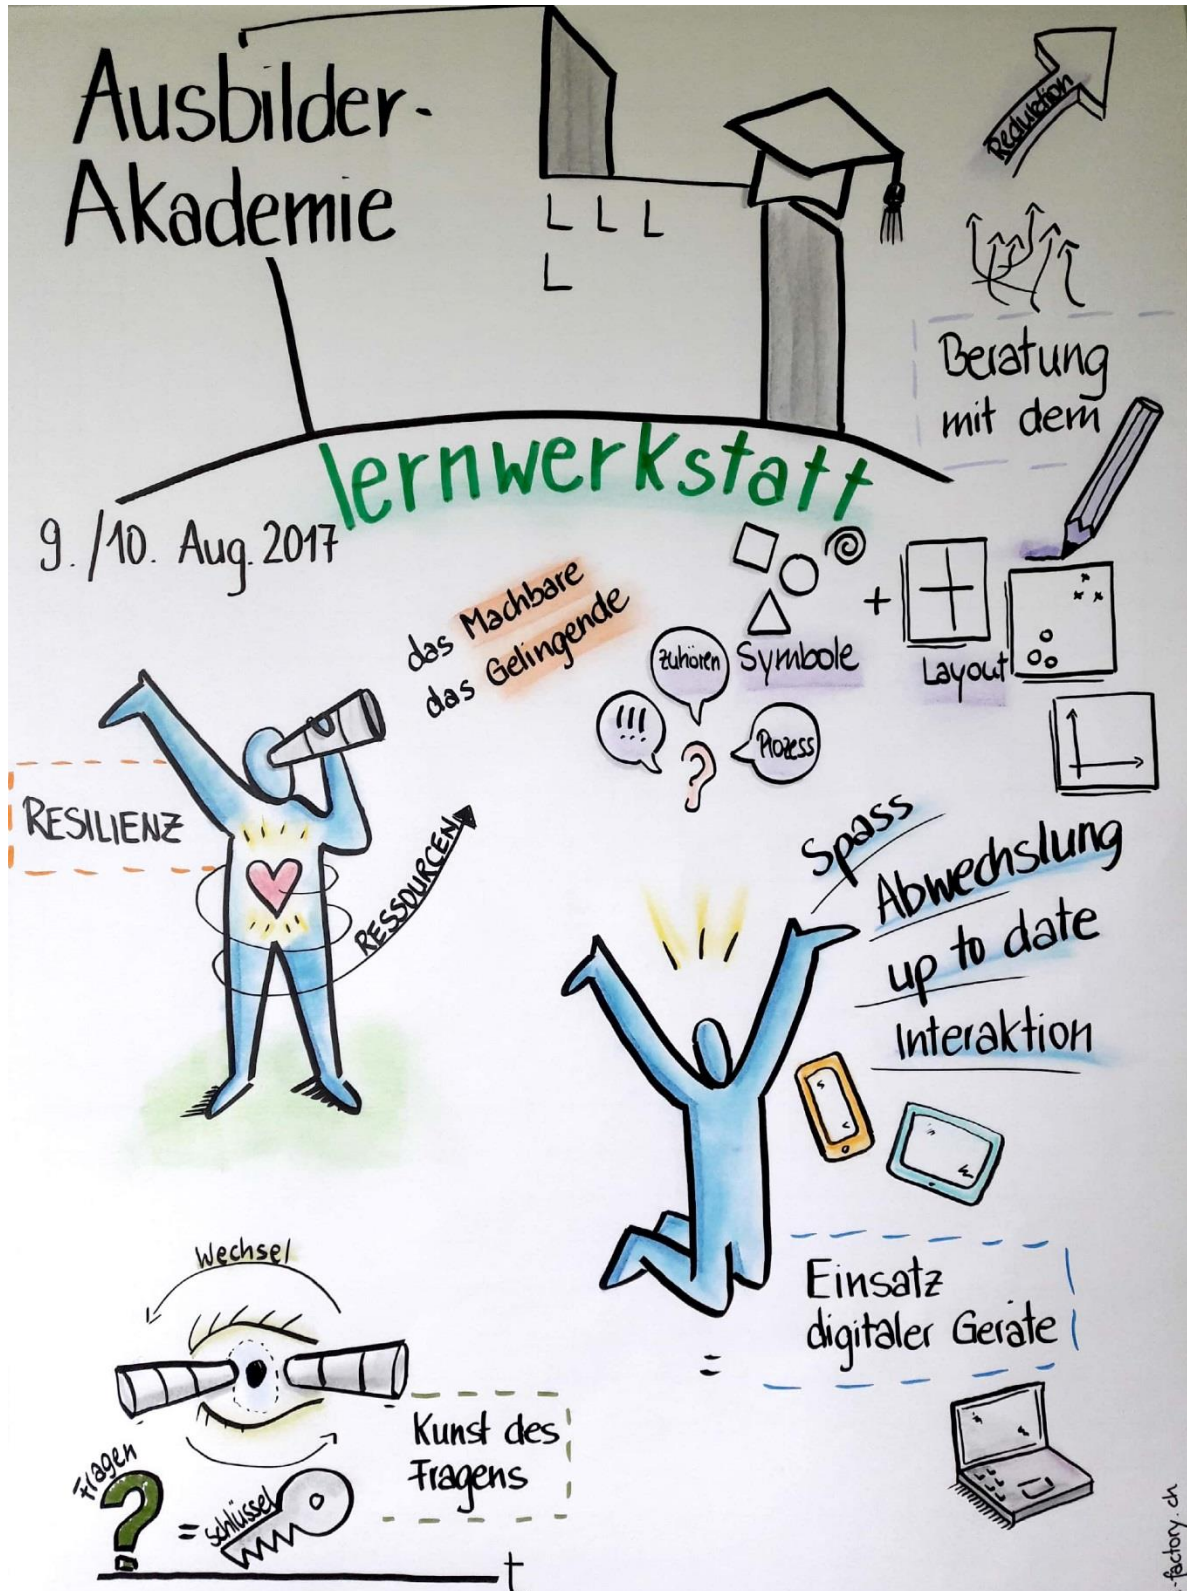 Ausbilder-
Akademie
Reduktion
Beratung
mit dem
lernwerkstatt
9./10. Aug. 2017
das Machbare
das Gelingende
Symbole
+
Layout
zuhören
!!!
?
Prozess
RESILIENZ
RESSOURCEN
Spass
Abwechslung
up to date
Interaktion
Einsatz
digitaler Geräte
=
Wechsel
Kunst des
Fragens
Fragen
?
=
Schlüssel
t
-factory.ch